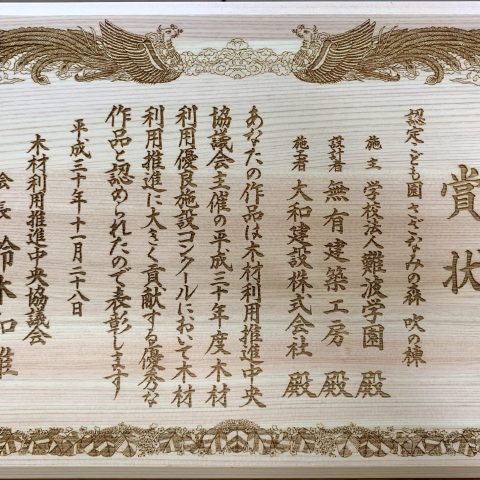 賞状
認定こども園 さざなみの森 吹の棟
施主 学校法人 難波学園 殿
設計者 無有建築工房 殿
施工者 大和建設株式会社 殿
あなたの作品は木材利用推進中央
協議会主催の平成三十年度木材
利用優良施設コンクールにおいて木材
利用推進に大きく貢献する優秀な
作品と認められたので表彰します
平成三十年十一月二十八日
木材利用推進中央協議会
会長 鈴木和雄